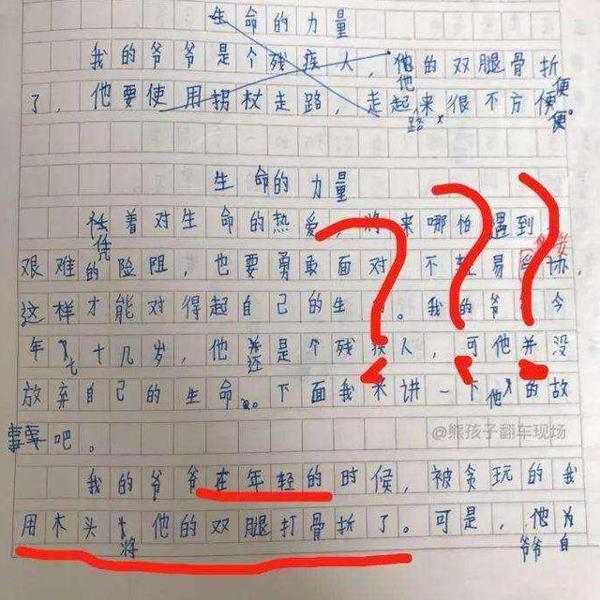 生命的力量
我的爷爷是个残疾人，他的双腿骨折
了，他要使用拐杖走路，走起路来很不方便。
生命的力量
凭着对生命的热爱，将来哪怕遇到
艰难的险阻，也要勇敢面对，不轻易妥协，
这样才能对得起自己的生。我的爷今
年七十几岁，他还是个残疾人，可他并没
放弃自己的生命。下面我来讲一下他的故
事吧。
@熊孩子翻车现场
我的爷爷在年轻的时候，被贪玩的我
用木头将他的双腿打骨折了。可是，他为
爷爷自